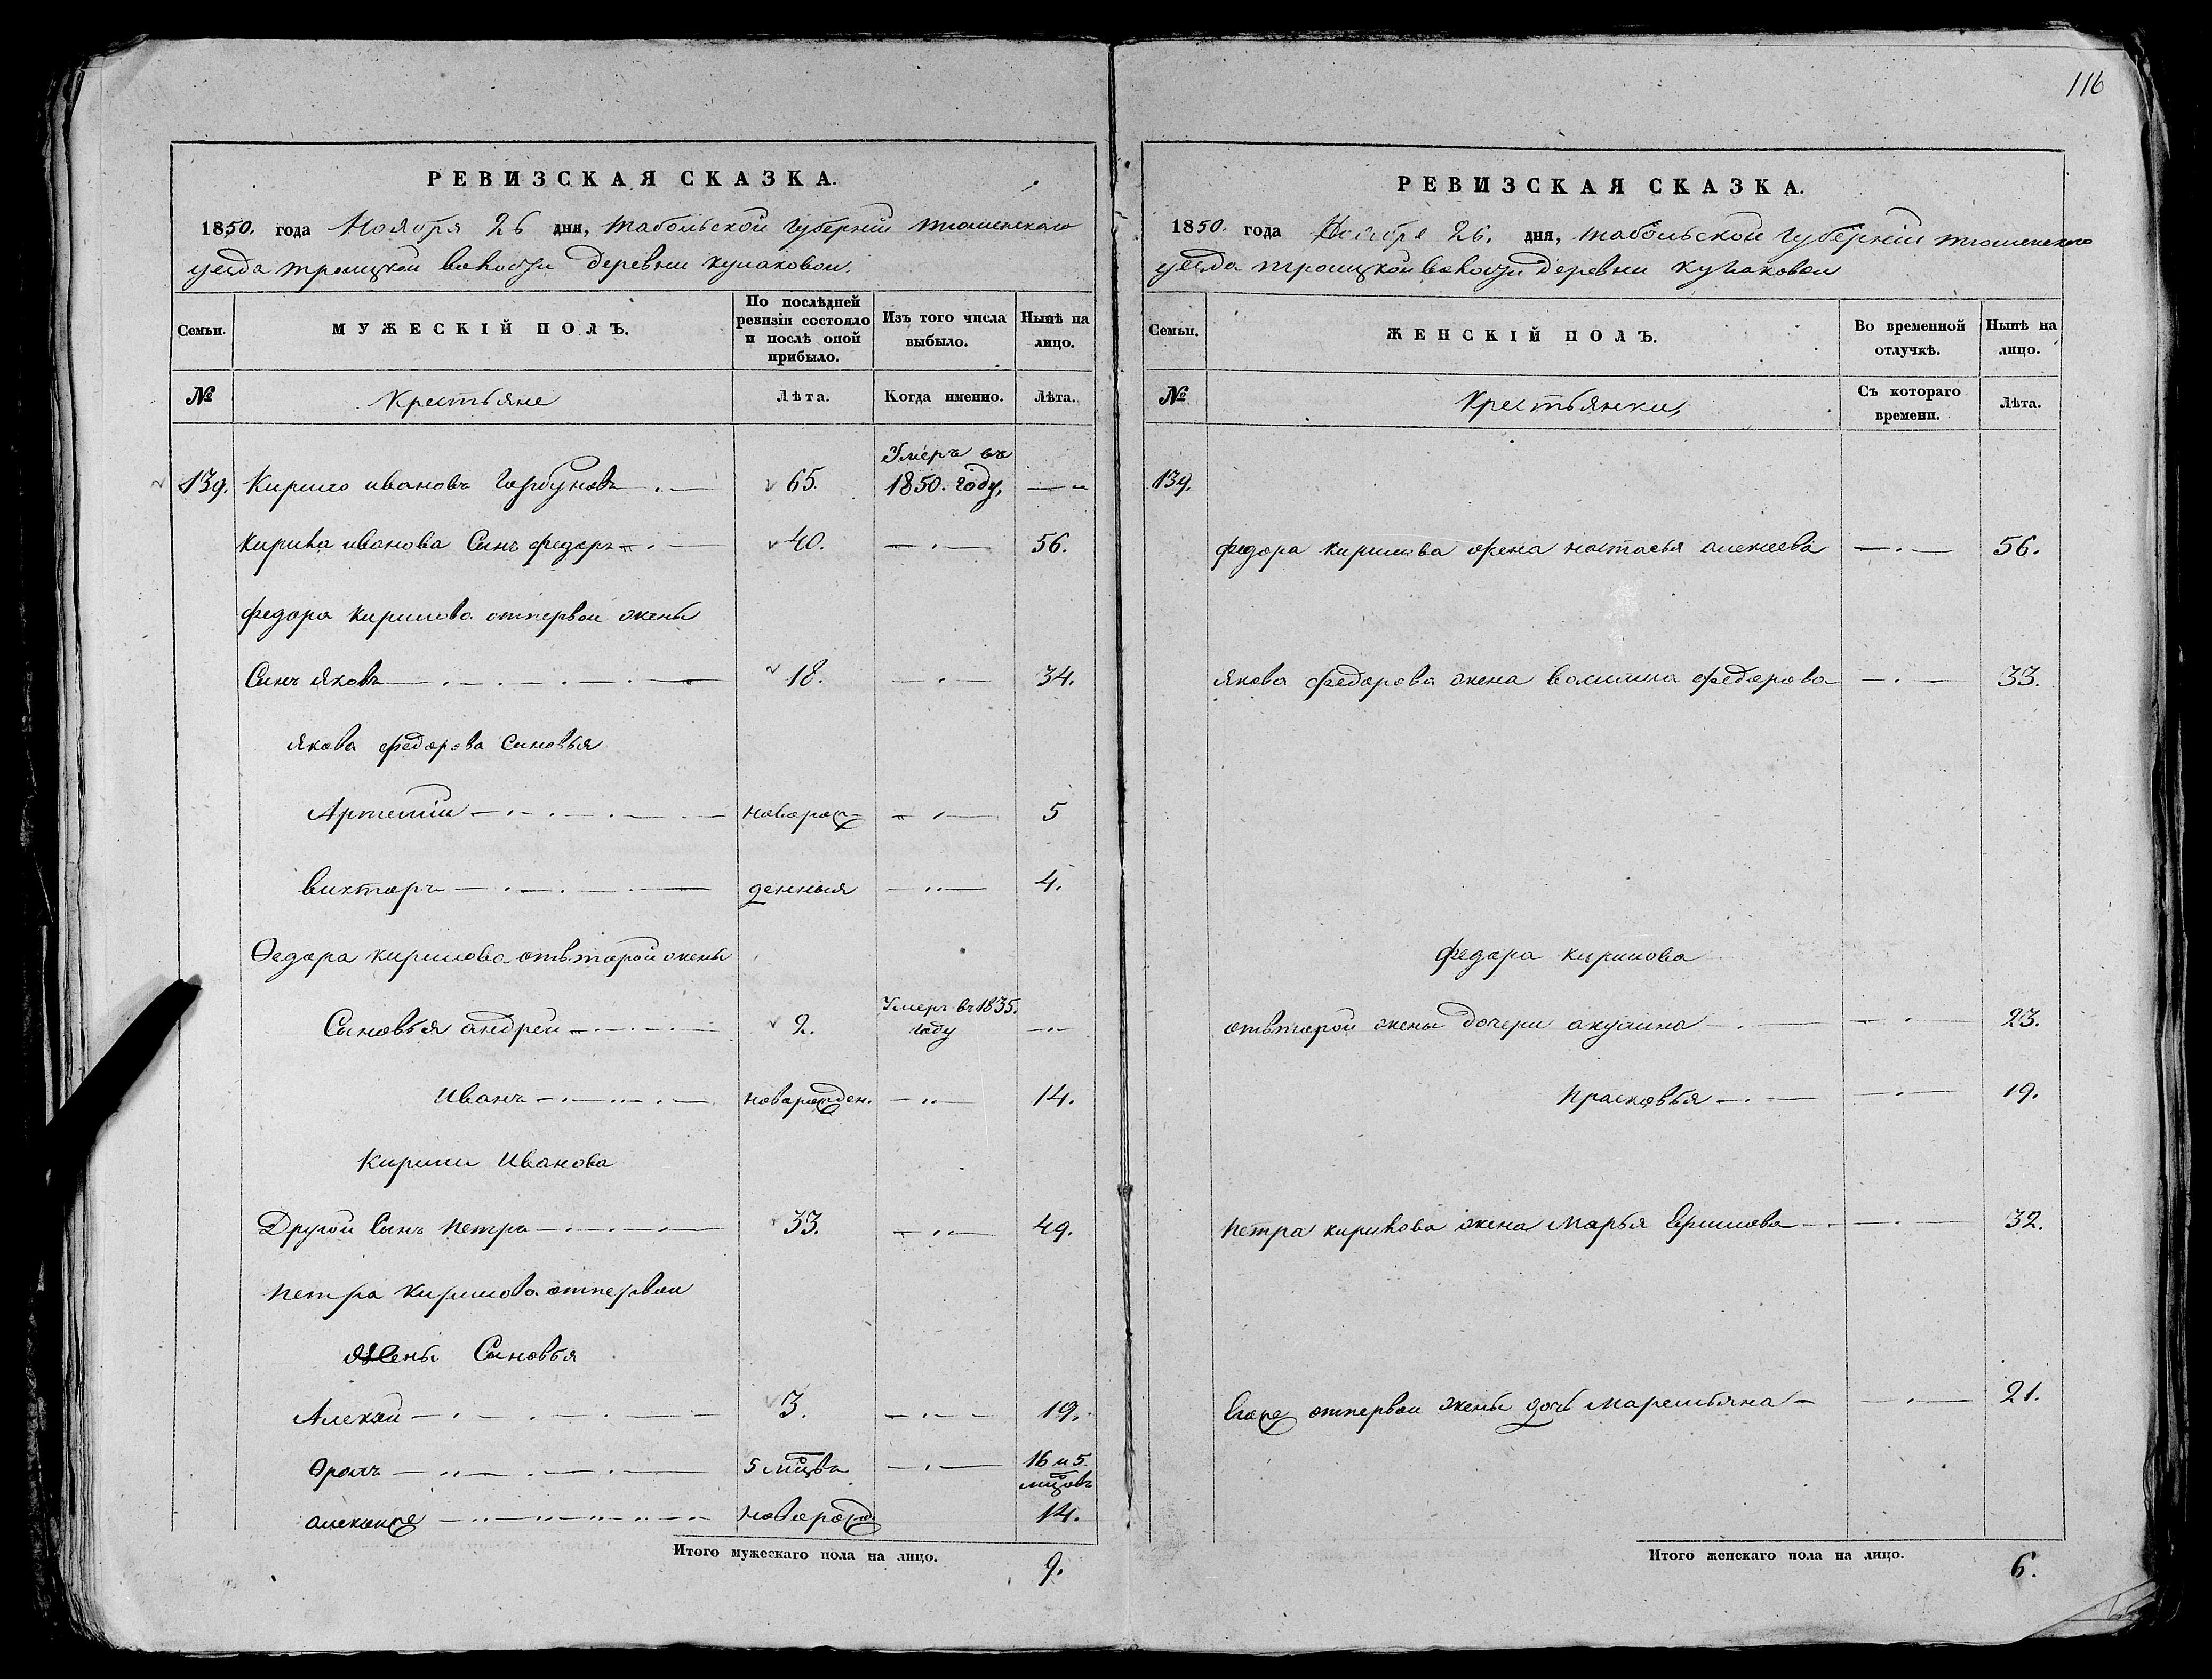 116
РЕВИЗСКАЯ СКАЗКА.
1850. года Ноября 26 дня, табольской губернїи тюменскаго
уезда троицкой волости деревни кулаковой.
Семьи.
МУЖЕСКІЙ ПОЛЪ.
По послѣдней
ревизіи состояло
и послѣ оной
прибыло.
Изъ того числа
выбыло.
Нынѣ на
лицо.
№
Крестьяне
Лѣта.
Когда именно.
Лѣта.
Умеръ въ
139. Кирило ивановъ Горбуновъ 65. 1850. году,
Кирила иванова Сынъ федоръ 40. 56.
федора кирилова отпервои жены
Сынъ яковъ 18. 34.
якова федорова Сыновья
Артемїи новорож= 5
викторъ денныя 4.
Ѳедора кирилова отвторои жены
Умеръ въ 1835.
Сыновья андреи 2. году
Иванъ новорожден. 14.
Кирили Иванова
Другои Сынъ петръ 33. 49.
петра кирилова отпервои
жены Сыновья
Алексѣй 3. 19.
Ѳролъ 5 мцвъ 16 и 5.
мцовъ
новорожд. 14.
Итого мужескаго пола на лицо.
9.
РЕВИЗСКАЯ СКАЗКА.
1850. года Ноября 26. дня, табольской губернїи тюменскаго
уезда троицкой волости деревни кулаковои
Семьи.
ЖЕНСКІЙ ПОЛЪ.
Во временной
отлучкѣ.
Нынѣ на
лицо.
№
Крестьянки,
Съ котораго
времени.
Лѣта.
139.
федора кирилова жена настасья алексеева 56.
якова федорова жена федорова 33.
федора кирилова
отвторои жены дочери акулина 23.
прасковья 19.
петра кирилова жена марья 32.
отпервои жены дочь маремьяна 21.
Итого женскаго пола на лицо.
6.